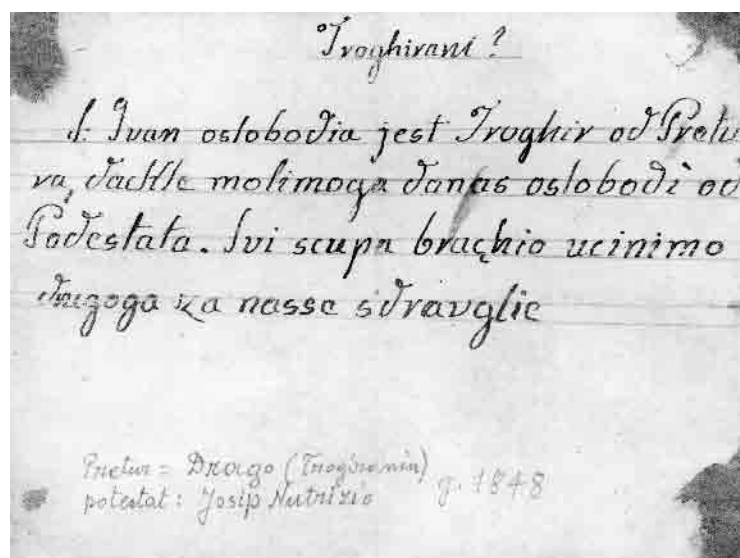 Troghirani?
S. Ivan oslobodia jest Troghir od Pretu
ra, dachle molimoga danas oslobodi od
Podestata. Svi scupa brachio ucinimo
drugoga za nasse sdravglie
Pretur = Drago (Trogiranin)
potestat: Josip Nutrizio g. 1848